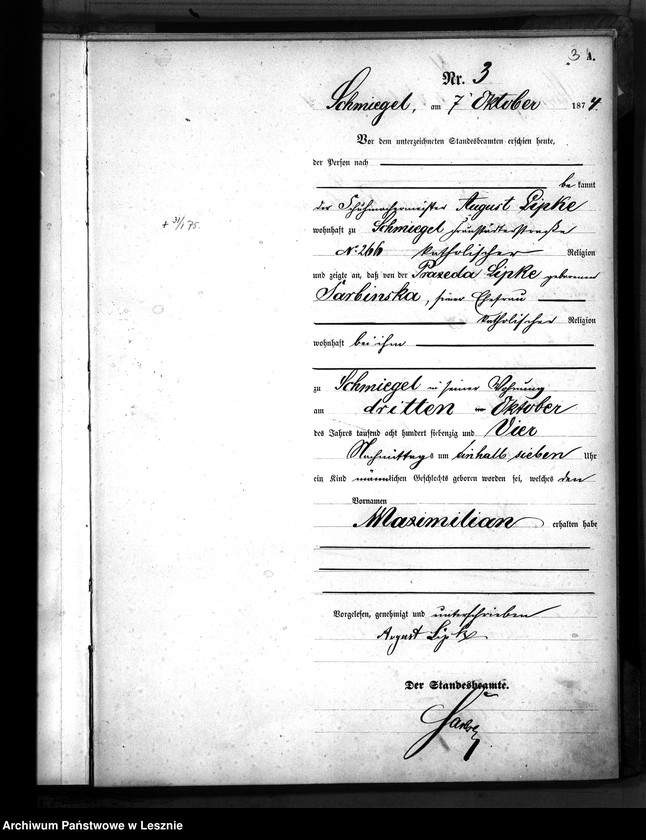 3 A.
Nr. 3
Schmiegel, am 7 Oktober 1874.
Vor dem unterzeichneten Standesbeamten erschien heute,
der Person nach
be kannt
der Schuhmachermeister August Lipke
wohnhaft zu Schmiegel Fraustädterstraße
No. 266 katholischer Religion
und zeigte an, daß von der Praxeda Lipke geborenen
Sarbinska, seiner Ehefrau
katholischer Religion
wohnhaft bei ihm
zu Schmiegel in seiner Wohnung
am dritten Oktober
des Jahres tausend acht hundert siebenzig und Vier
Nachmittags um einhalb sieben Uhr
ein Kind männlichen Geschlechts geboren worden sei, welches den
Vornamen
Maximilian erhalten habe
+ 31/1 75.
Vorgelesen, genehmigt und unterschrieben
August Lipke
Der Standesbeamte.
Archiwum Państwowe w Lesznie